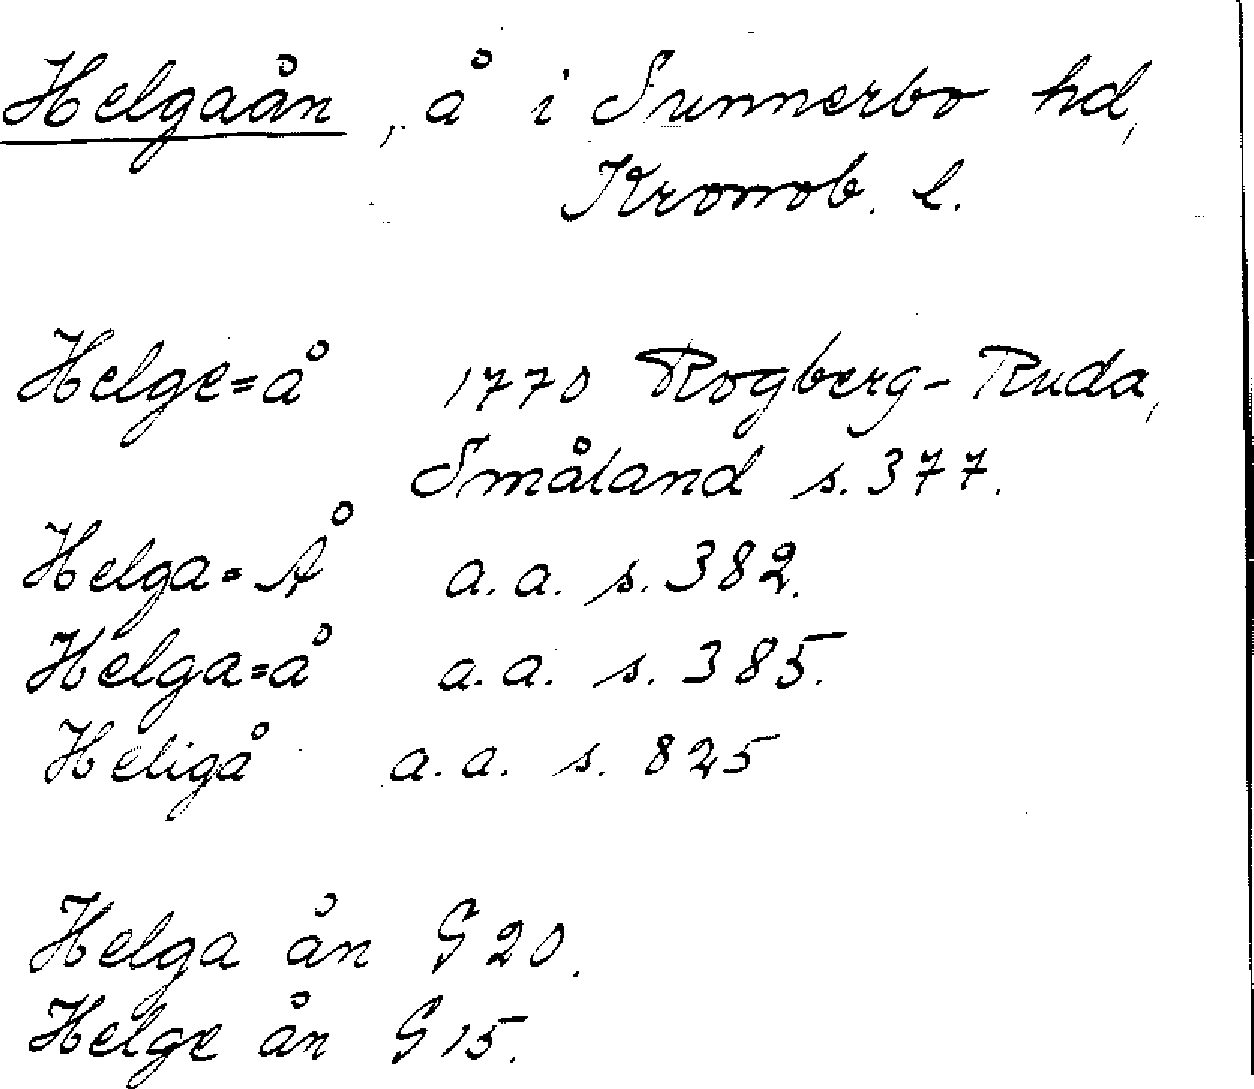 Helgaån, å i Sunnerbo hd,
Kronob. l.
Helge=å 1770 Rogberg-Ruda,
Småland s. 377.
Helga=Å a.a. s. 382.
Helga=å a.a. s. 385.
Heligå a.a. s. 825
Helga ån G 20.
Helge ån G 15.